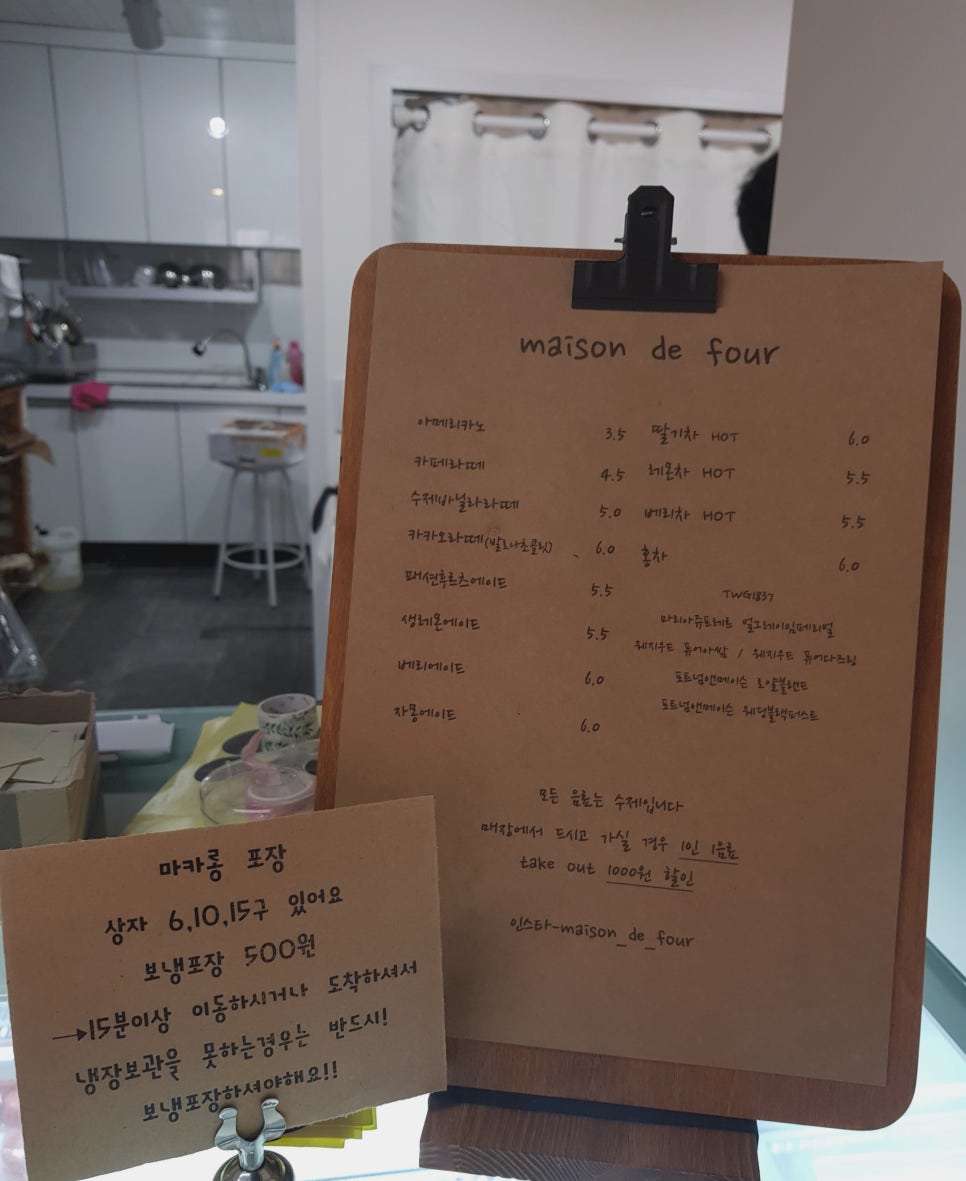 maison de four
아메리카노 3.5
카페라떼 4.5
수제바닐라라떼 5.0
카카오라떼(발로나초콜릿) 6.0
패션후르츠에이드 5.5
생레몬에이드 5.5
베리에이드 6.0
자몽에이드 6.0
딸기차 HOT 6.0
레몬차 HOT 5.5
베리차 HOT 5.5
홍차 6.0
TWG1837
마리아쥬프레르 얼그레이임페리얼
웨지우드 퓨어아쌈 / 웨지우드 퓨어다즈링
포트넘앤메이슨 로얄블랜드
포트넘앤메이슨 웨딩블랙퍼스트
모든 음료는 수제입니다
매장에서 드시고 가실 경우 1인 1음료
take out 1000원 할인
인스타-maison_de_four
마카롱 포장
상자 6,10,15구 있어요
보냉포장 500원
→15분이상 이동하시거나 도착하셔서
냉장보관을 못하는경우는 반드시!
보냉포장하셔야해요!!